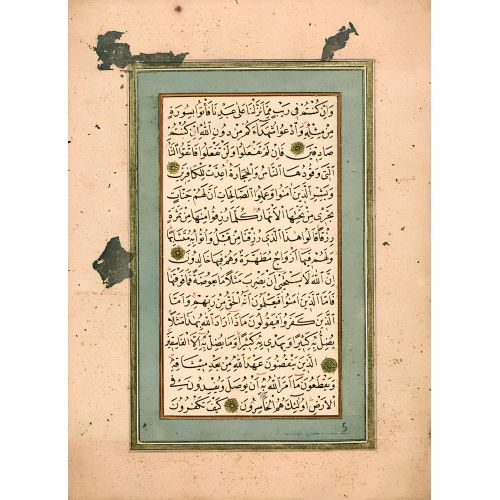 وَإِنْ كُنْتُمْ فِي رَيْبٍ مِمَّا نَزَّلْنَا عَلَى عَبْدِنَا فَأْتُوا بِسُورَةٍ
مِنْ مِثْلِهِ وَادْعُوا شُهَدَاءَكُمْ مِنْ دُونِ اللَّهِ إِنْ كُنْتُمْ
صَادِقِينَ فَإِنْ لَمْ تَفْعَلُوا وَلَنْ تَفْعَلُوا فَاتَّقُوا النَّارَ
الَّتِي وَقُودُهَا النَّاسُ وَالْحِجَارَةُ أُعِدَّتْ لِلْكَافِرِينَ
وَبَشِّرِ الَّذِينَ آمَنُوا وَعَمِلُوا الصَّالِحَاتِ أَنَّ لَهُمْ جَنَّاتٍ
تَجْرِي مِنْ تَحْتِهَا الْأَنْهَارُ كُلَّمَا رُزِقُوا مِنْهَا مِنْ ثَمَرَةٍ
رِزْقًا قَالُوا هَذَا الَّذِي رُزِقْنَا مِنْ قَبْلُ وَأُتُوا بِهِ مُتَشَابِهًا
وَلَهُمْ فِيهَا أَزْوَاجٌ مُطَهَّرَةٌ وَهُمْ فِيهَا خَالِدُونَ
إِنَّ اللَّهَ لَا يَسْتَحْيِي أَنْ يَضْرِبَ مَثَلًا مَا بَعُوضَةً فَمَا فَوْقَهَا
فَأَمَّا الَّذِينَ آمَنُوا فَيَعْلَمُونَ أَنَّهُ الْحَقُّ مِنْ رَبِّهِمْ وَأَمَّا
الَّذِينَ كَفَرُوا فَيَقُولُونَ مَاذَا أَرَادَ اللَّهُ بِهَذَا مَثَلًا
يُضِلُّ بِهِ كَثِيرًا وَيَهْدِي بِهِ كَثِيرًا وَمَا يُضِلُّ بِهِ إِلَّا الْفَاسِقِينَ
الَّذِينَ يَنْقُضُونَ عَهْدَ اللَّهِ مِنْ بَعْدِ مِيثَاقِهِ
وَيَقْطَعُونَ مَا أَمَرَ اللَّهُ بِهِ أَنْ يُوصَلَ وَيُفْسِدُونَ فِي
الْأَرْضِ أُولَئِكَ هُمُ الْخَاسِرُونَ كَيْفَ تَكْفُرُونَ